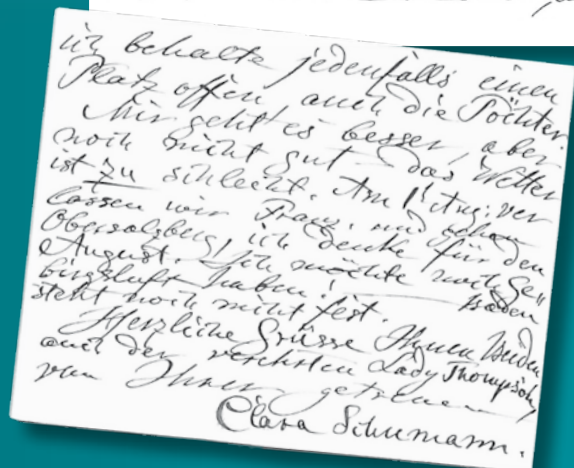 ich behalte jedenfalls einen
Platz offen, auch die Töchter.
Mir geht es besser, aber
noch nicht gut – das Wetter
ist zu schlecht. Am 1t Aug. ver
lassen wir Franz. und gehen
Obersalzberg, ich denke für den
August. Ich möchte noch Ge
birgsluft haben! – Baden
steht noch nicht fest.
Herzliche Grüsse Ihnen Beiden
auch der verehrten Lady Thompson,
von Ihrer getreuen
Clara Schumann.